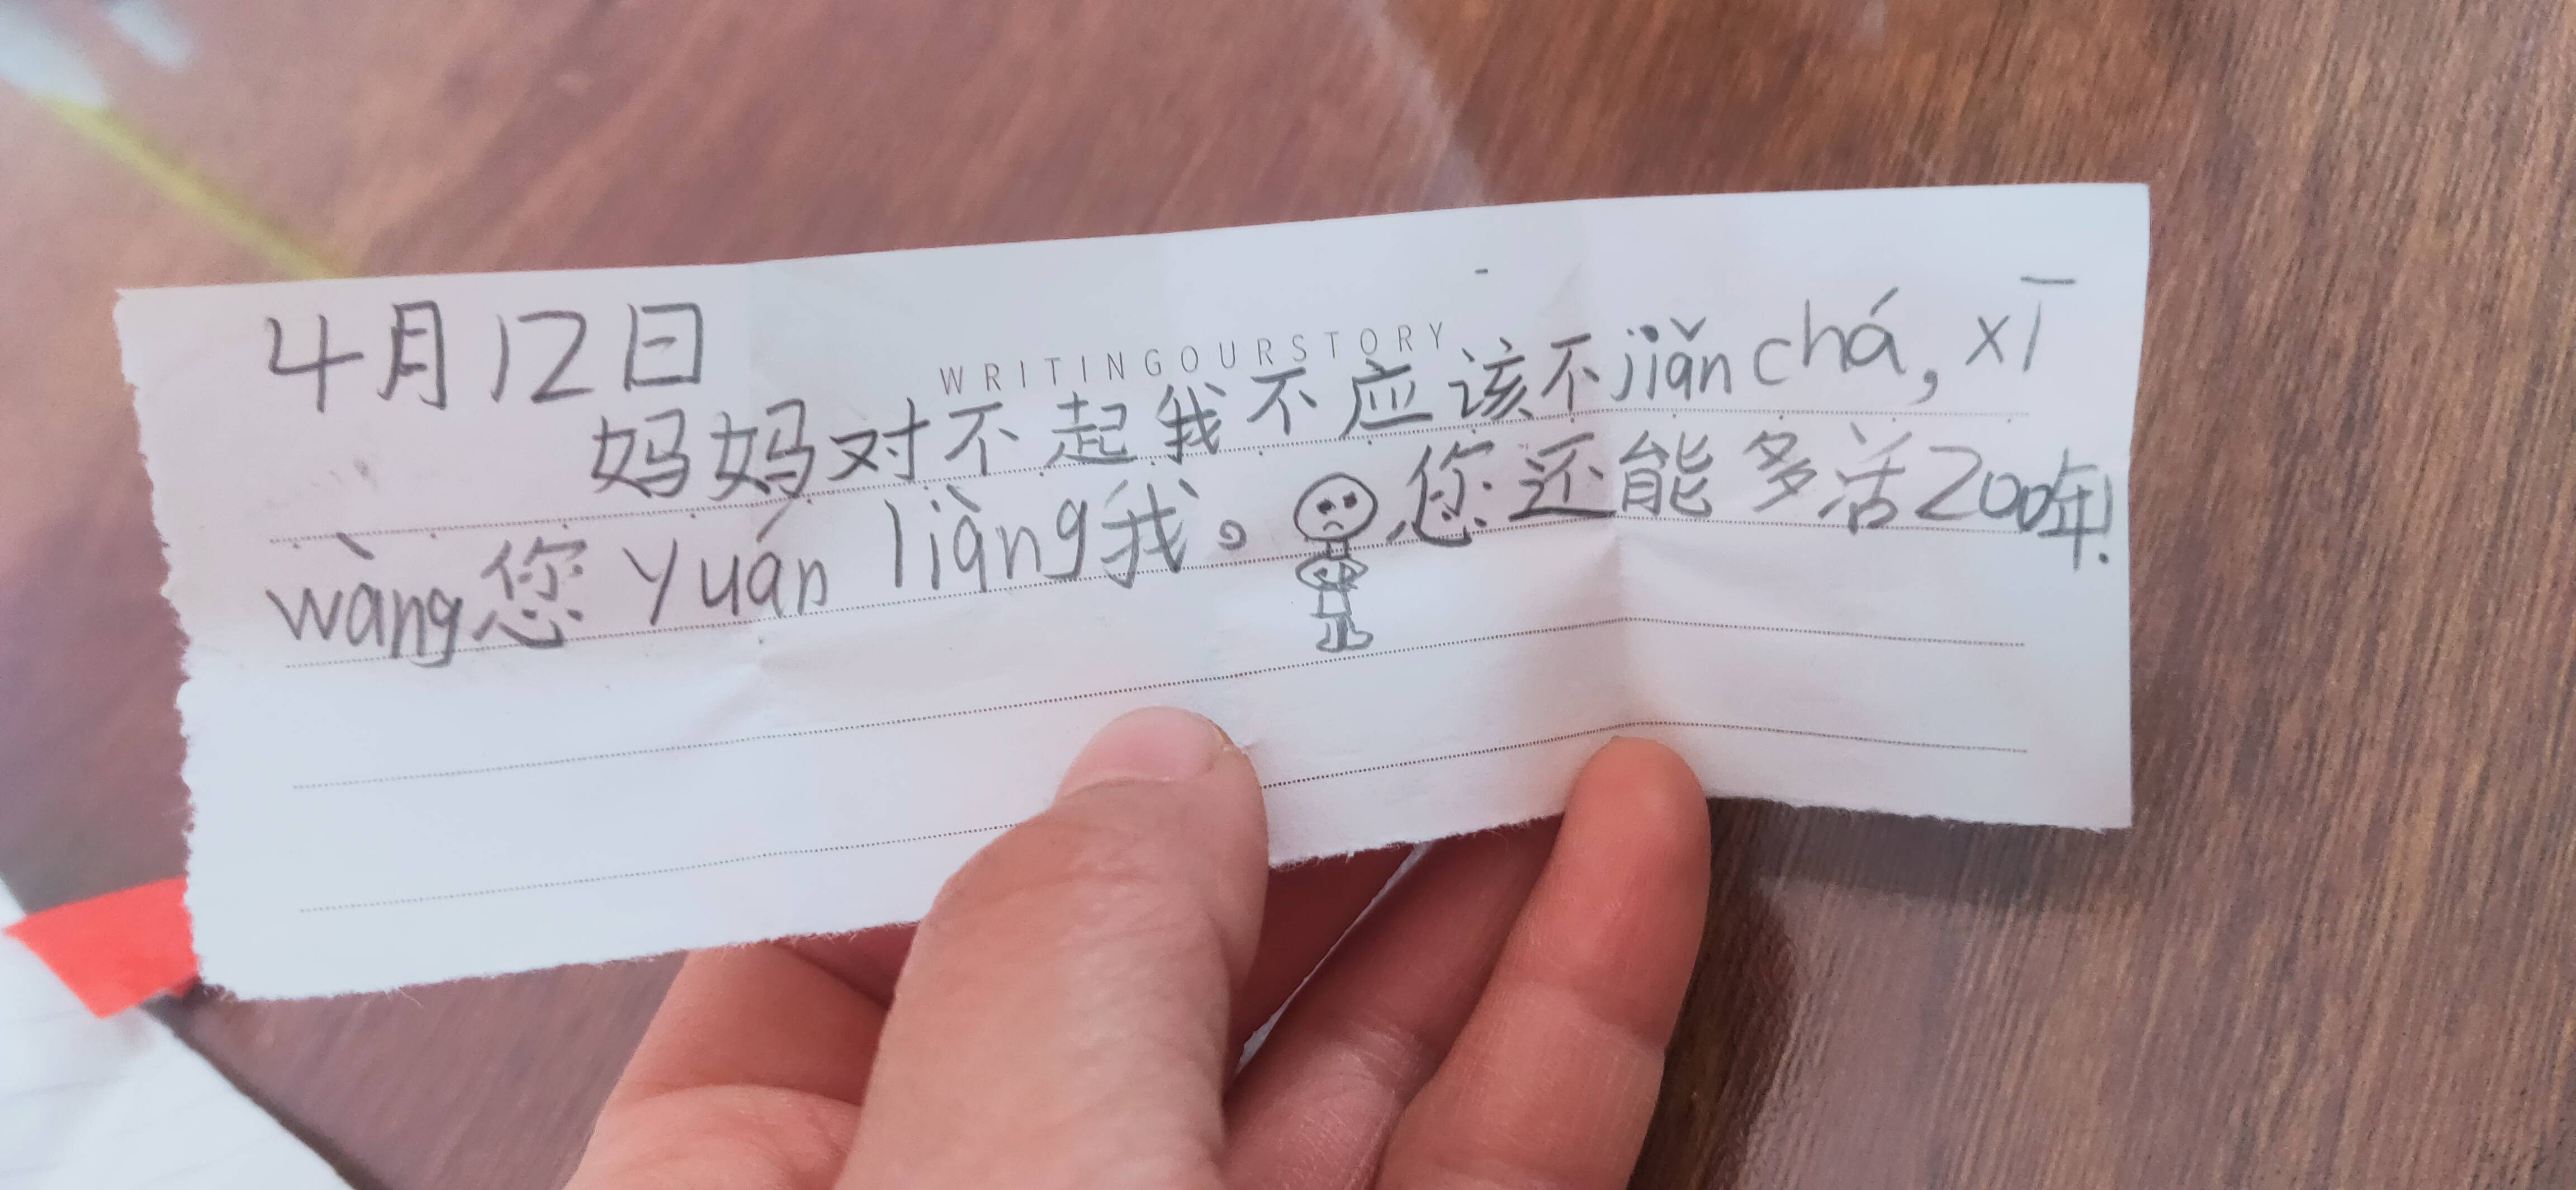 4月12日
WRITINGOURSTORY
妈妈对不起我不应该不jiǎn chá,xī
wàng您yuán liàng我。您还能多活200年!